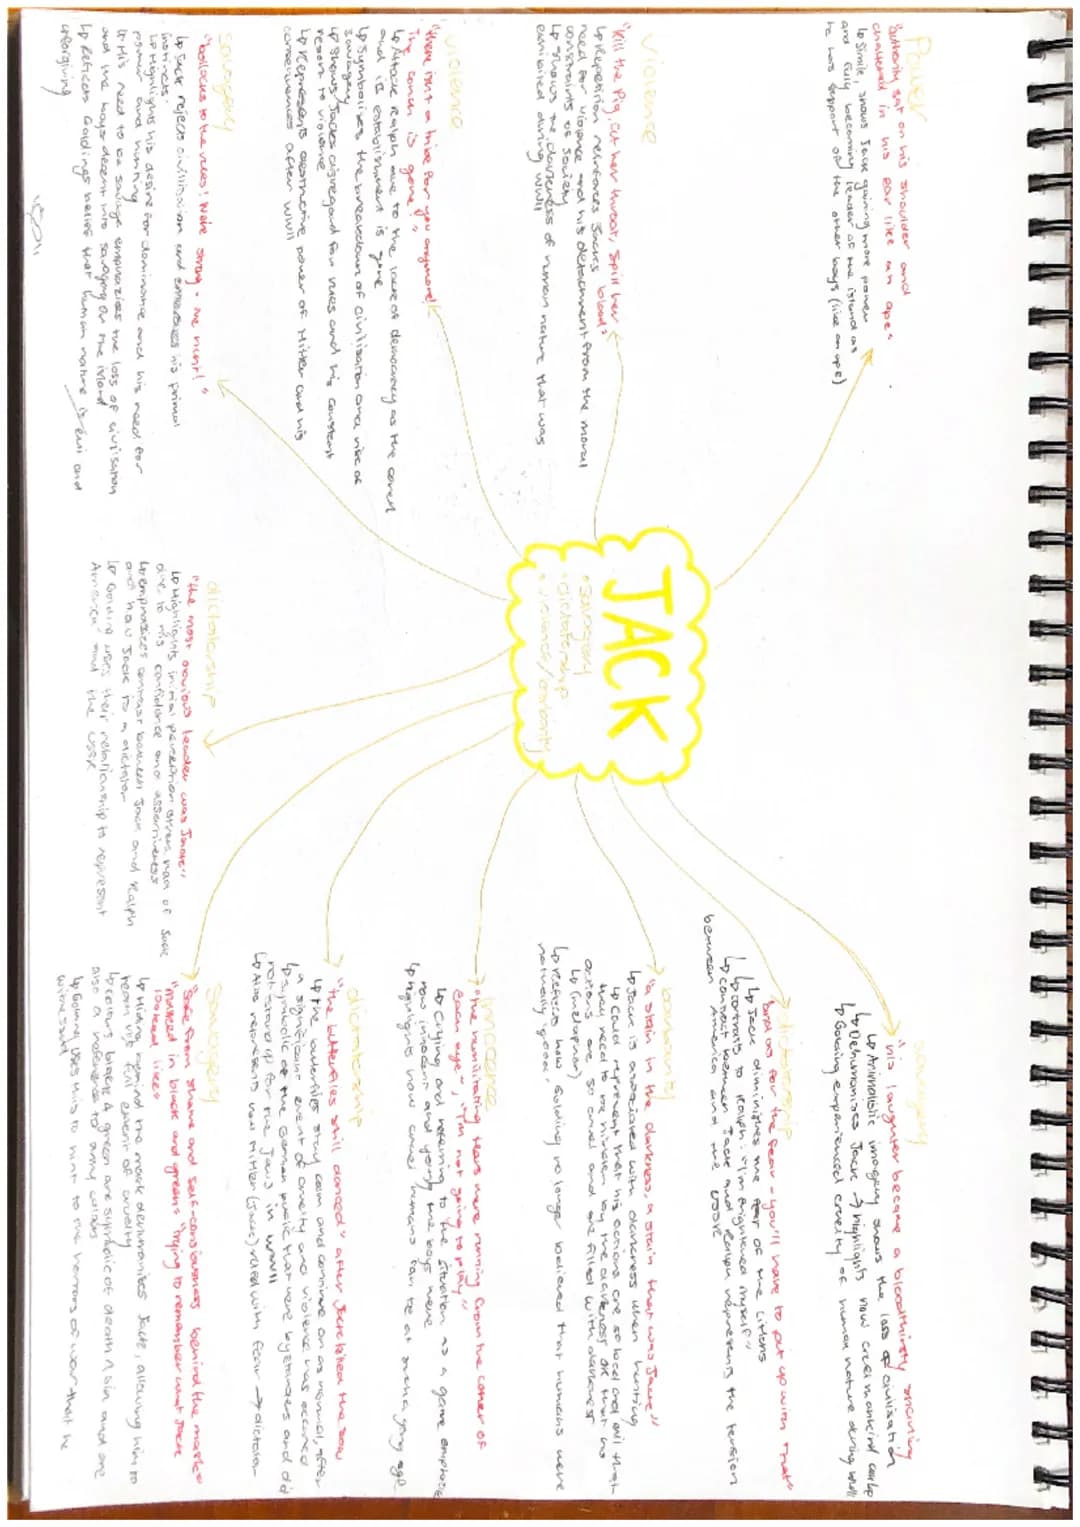 JACK
• savagery
• dictatorship
• violence/brutality
Power
"authority sat on his shoulder and
chattered in his ear like an ape"
↳ Simile, shows Jack gaining more power
and fully becoming leader of the island as
he has support of the other boys (like an ape)
Violence
"Kill the Pig, cut her throat, spill her blood"
↳ Repetition reinforces Jack's
need for violence and his detachment from the moral
constraints of society
↳ shows the darkness of human nature that was
exhibited during WWII
violence
"there isn't a tribe for you anymore!
The conch is gone"
↳ Attack Ralph due to the
and its establishment is gone
↳ Symbolises the breakdown of civilisation and rise of
savagery
↳ Shows Jacks disregard for rules and his constant
resort to violence
↳ Represents destructive power of Hitler and his
after WWII
savagery
"bollocks to the rules! We're strong - we hunt!"
↳ Jack rejects civilisation and embraces his primal
instincts
↳ Highlights his desire for dominance and his need for
power and hunting
↳ His need to be savage emphasizes the loss of civilisation
and the boys decent into savagery on the island
↳ Reflects Goldings belief that human nature is evil and
unforgiving
dictatorship
"the most obvious leader was Jack"
↳ Highlights initial perception others had of Jack
due to his confidence and assertiveness
↳ emphasizes contrast between Jack and Ralph
and how Jack is a dictator
↳ Golding uses their relationship to represent
America and the USSR
savagery
"his laughter became a bloodthirsty snarling"
↳ Animalistic imagery shows the loss of civilisation
↳ Dehumanises Jack → highlights how cruel mankind can be
↳ Golding experienced cruelty of human nature during WWII
dictatorship
"and as for the fear - you'll have to put up with that"
↳ Jack diminishes the fear of the littluns
↳ contrasts to Ralph: "I'm frightened myself"
↳ conflict between Jack and Ralph represents the tension
between America and the USSR
brutality
"a stain in the darkness, a stain that was Jack"
↳ Jack is associated with darkness when hunting
↳ Could represent that his actions are so bad and evil that
they need to be hidden by the darkness or that his
actions are so cruel and are filled with darkness
↳ (metaphor)
↳ reflects how Golding no longer believed that humans were
naturally good.
Innocence
"the humiliating tears were running from the corner of
each eye", "I'm not going to play"
↳ Crying and referring to the situation as a game emphasise
how innocent and young the boys were
↳ highlights how cruel humans can be at such a young age
dictatorship
"the butterflies still danced" after Jack killed the sow
↳ The butterflies stay calm and continue on as normal, after
a significant event of cruelty and violence has occured
↳ symbolic of the German public that were bystanders and did
not stand up for the Jews in WWII
↳ Also represents how Hitler (Jack) ruled with fear → dictator
savagery
"safe from shame and self-consciousness behind the mask"
"masked in black and green" "trying to remember what Jack
looked like"
↳ Hiding behind the mask dehumanizes Jack, allowing him to
reach his full extent of cruelty
↳ colours black & green are symbolic of death & sin and are
also a reference to army colours
↳ Golding uses this to hint to the horrors of war that he
witnessed